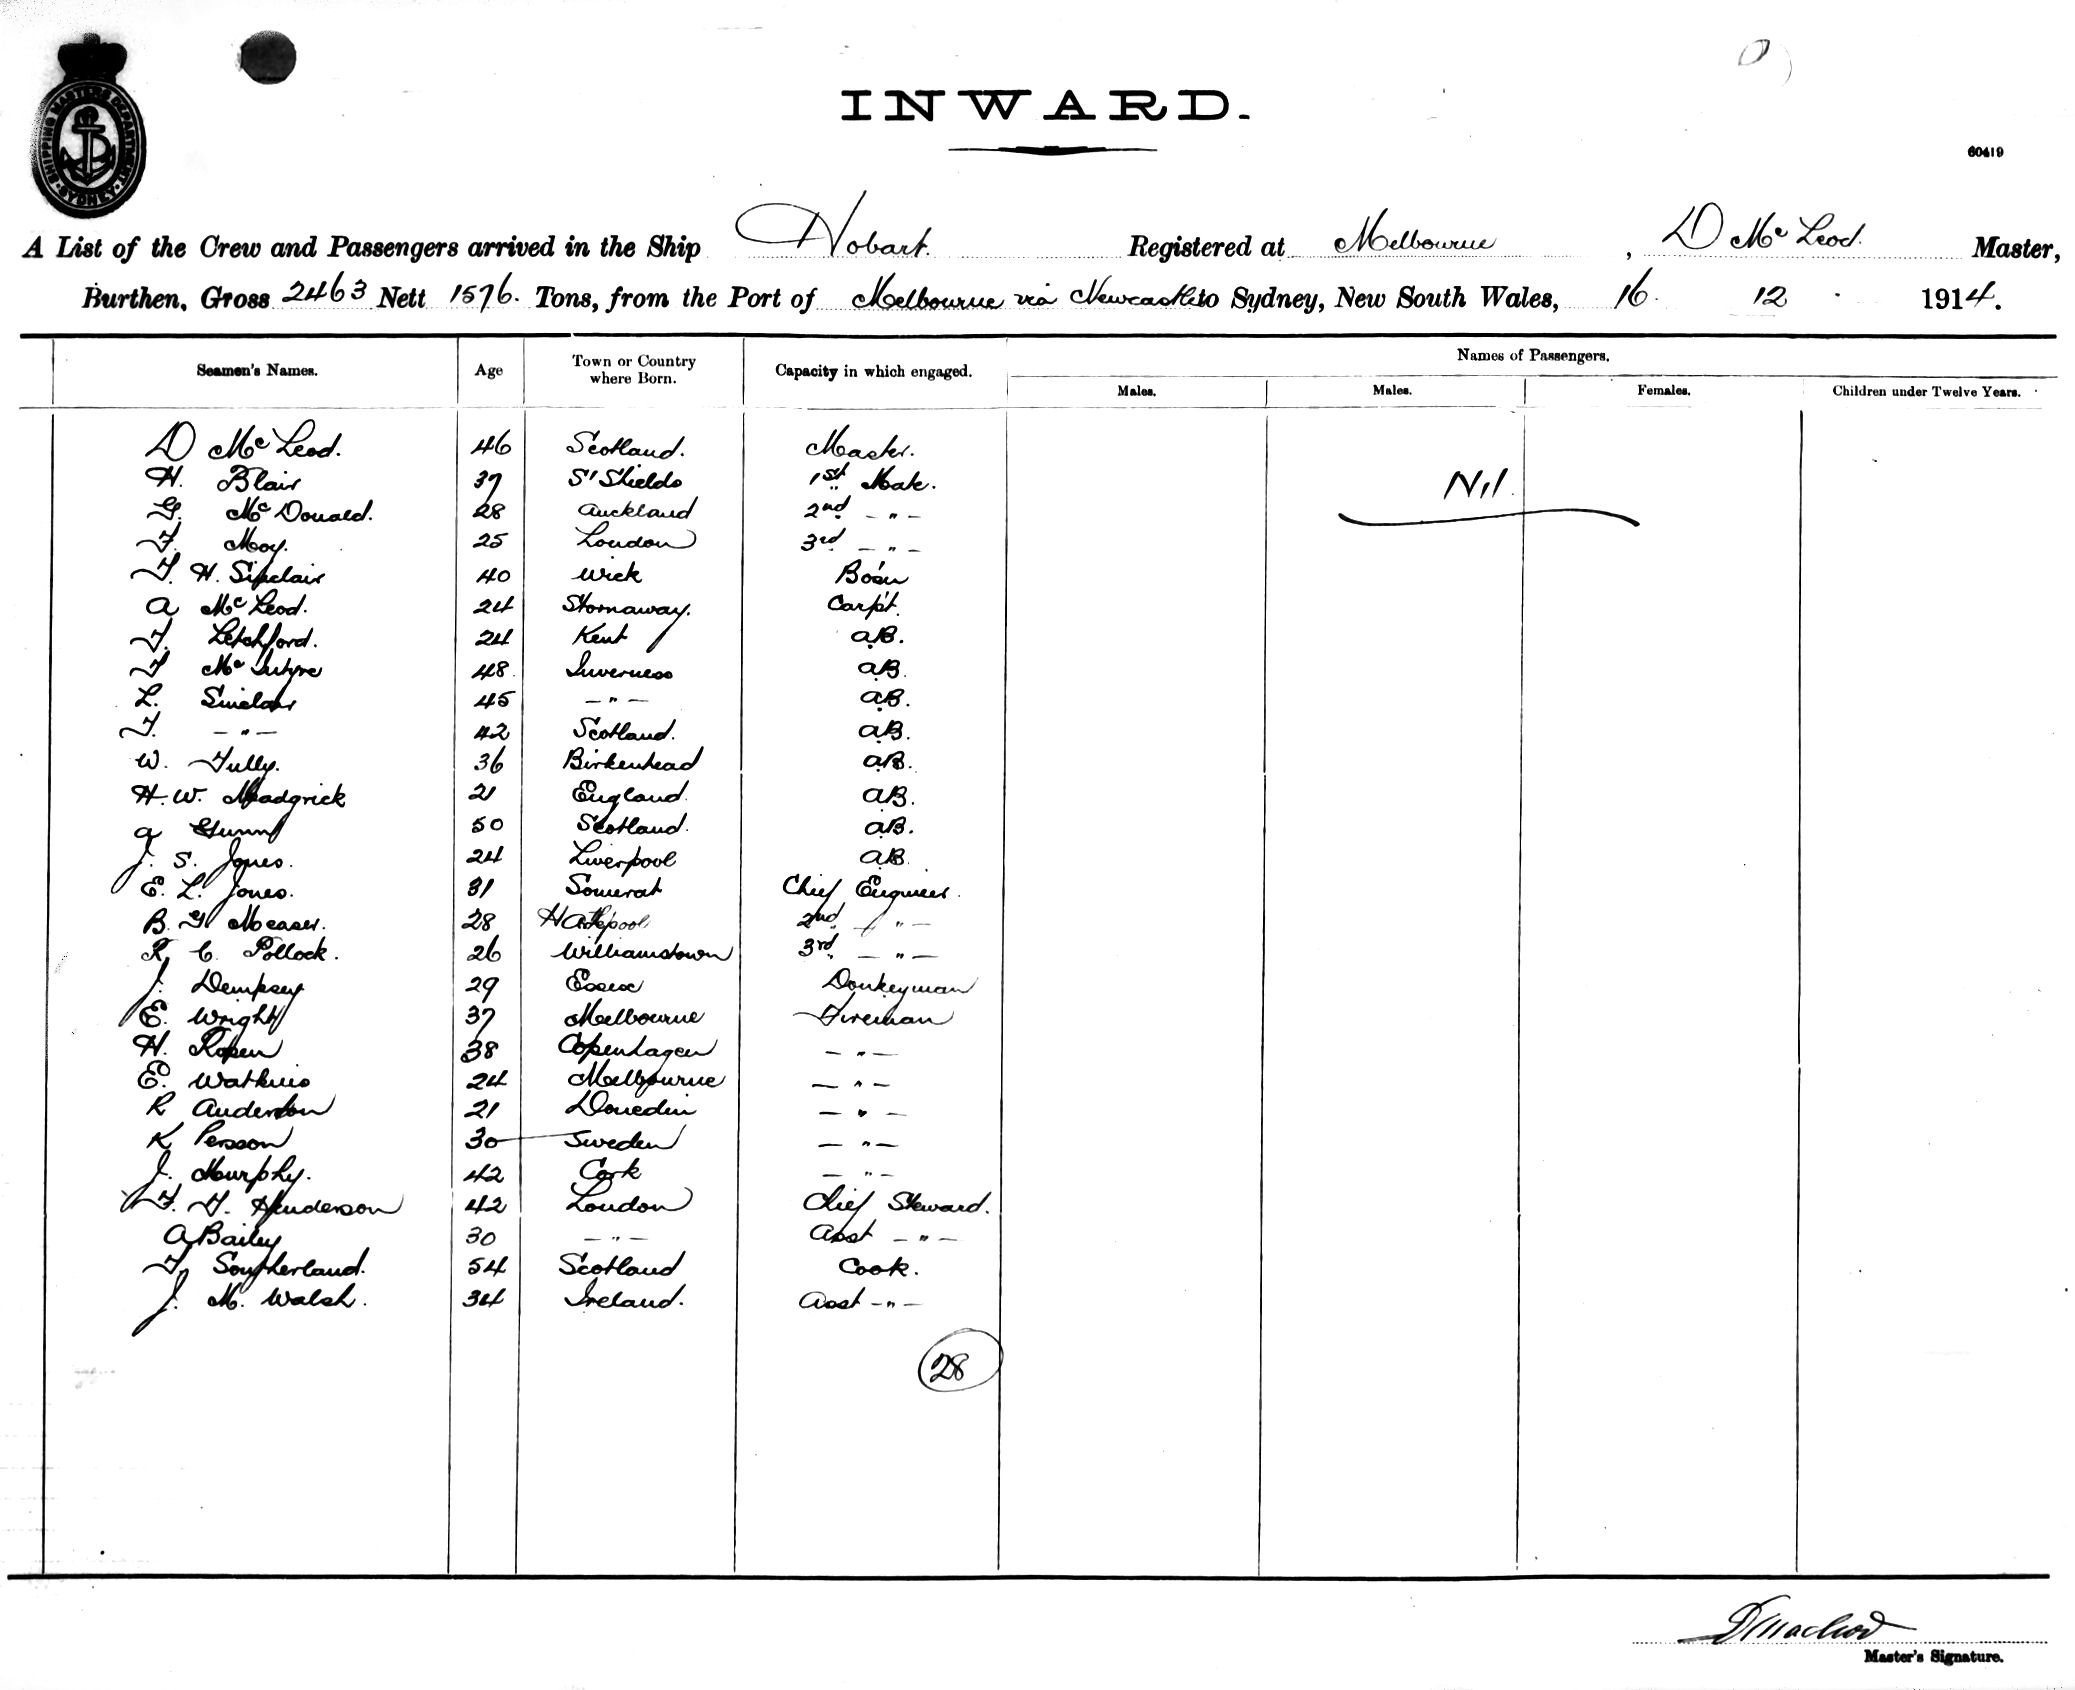 SHIPPING MASTERS DEPARTMENT · SYDNEY ·
INWARD.
60419
A List of the Crew and Passengers arrived in the Ship Hobart. Registered at Melbourne, D Mc Leod. Master,
Burthen, Gross 2463 Nett 1576. Tons, from the Port of Melbourne via Newcastle to Sydney, New South Wales, 16. 12 . 1914.
Seamen's Names. Age Town or Country where Born. Capacity in which engaged. Names of Passengers.
Males. Males. Females. Children under Twelve Years.
D Mc Leod. 46 Scotland. Master.
H. Blair 37 St Shields 1st Mate. Nil.
G. Mc Donald. 28 Auckland 2nd - " -
F. Moy. 25 London 3rd - " -
J. H. Sinclair 40 Wick Bo'sn
A Mc Leod. 24 Stornaway. Carpt.
F. Letchford. 24 Kent A.B.
J Mc Intyre 48. Inverness A.B.
L. Sinclair 45 - " - A.B.
J. - " - 42 Scotland. A.B.
W. Tully. 36 Birkenhead A.B.
H. W. Madgrick 21 England. A.B.
A Gunn 50 Scotland. A.B.
J. S. Jones. 24 Liverpool A.B.
E. L. Jones. 31 Somerset Chief Engineer.
B. G Measer. 28 Hartlepool 2nd - " -
R. C. Pollock. 26 Williamstown 3rd. - " -
J. Dempsey 29 Essex Donkeyman
E. Wright 37 Melbourne Fireman
H. 38 Copenhagen - " -
E. Watkins 24 Melbourne - " -
R Anderson 21 Dunedin - " -
K Persson 30 Sweden - " -
J. Murphy. 42 Cork - " -
F. Henderson 42 London Chief Steward.
A Bailey 30 - " - Asst - " -
J. Southerland. 54 Scotland Cook.
J. M. Walsh. 34 Ireland. Asst - " -
28
D Macleod
Master's Signature.